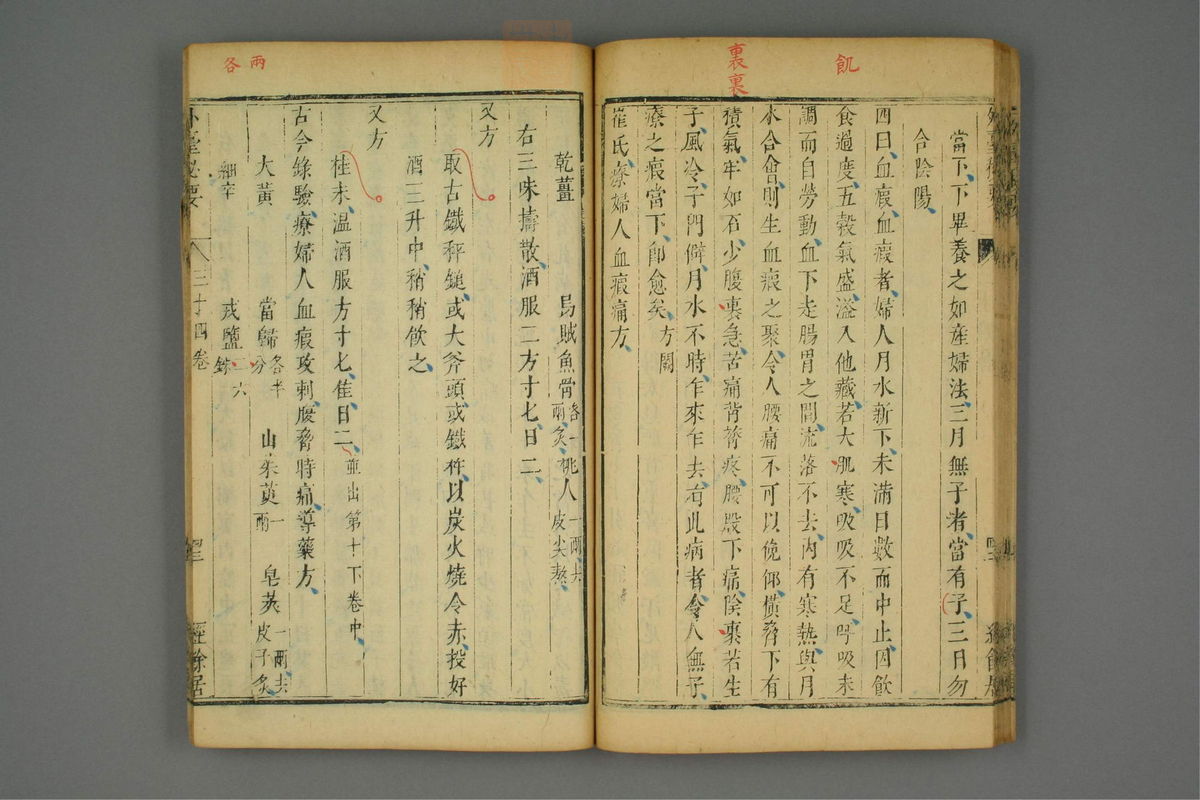 飢
裏裏
當下下畢養之如産婦法三月無子者當有子三日勿
合陰陽
四曰血瘕血瘕者婦人月水新下未滿日數而中止因飲
食過度五穀氣盛溢入他藏若大肌寒吸吸不足呼吸未
調而自勞動血下走腸胃之間流落不去內有寒熱與月
水合會則生血瘕之聚令人腰痛不可以俛仰橫脅下有
積氣牢如石少腹裏急苦痛背膂疼腰股下痛陰裏若生
子風冷子門僻月水不時乍來乍去有此病者令人無子
療之瘕當下卽愈矣方闕
崔氏療婦人血瘕痛方
各兩
乾薑 烏賊魚骨各一兩炙 桃人一兩去皮尖熬
右三味擣散酒服二方寸匕日二
又方
取古鐵秤鎚或大斧頭或鐵杵以炭火燒令赤投好
酒三升中稍稍飲之
又方
桂末溫酒服方寸匕佳日二並出第十下卷中
古今錄驗療婦人血瘕攻刺腹脅時痛導藥方
大黃 當歸各半分 山茱萸一兩 皂莢一兩去皮子炙
細辛 戎鹽二六銖
外臺秘要 三十四卷 經餘居